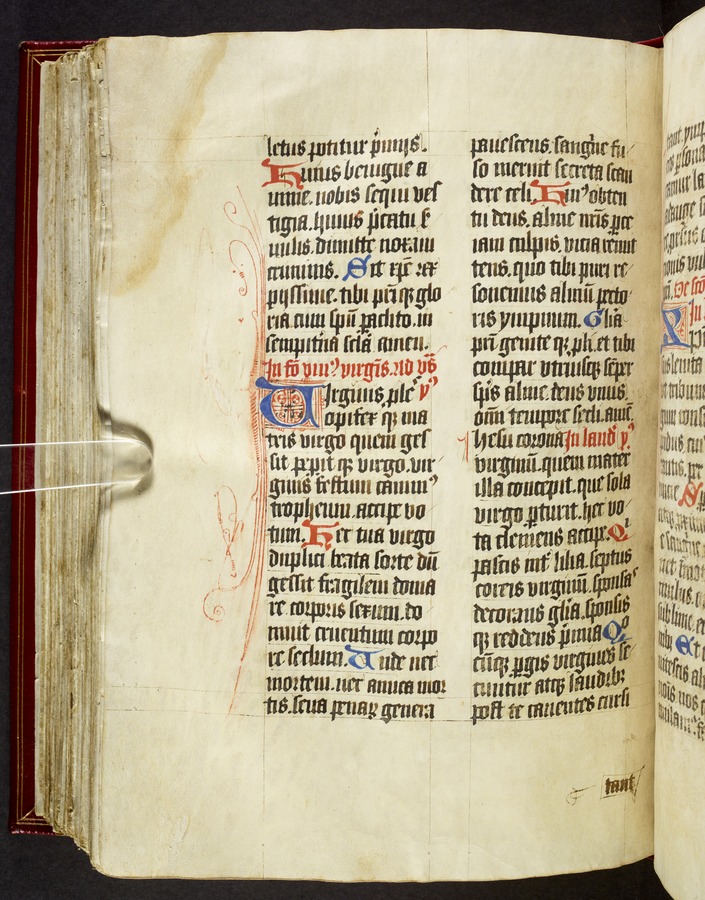 letus potitur p̄mijs.
Huius benigne a
nime. nobis sequi ves
tigia. huius p̄catu f
mulis. dimitte noxam
criminis. Sit xp̄e rex
pijssime. tibi pr̄iqꝫ glo
ria cum spū paclito. in
sempit̾na sc̄la amen.
In fō uniꝰ virgīs. ad vs̄
Uirginis ple yꝰ
opifex qꝫ ma
tris virgo quem ges
sit peꝑit qꝫ virgo. vir
ginis festum canimꝰ
tropheum. accipe vo
tum. Hec tua virgo
duplici beata sorte dū
gessit fragilem doma
re corporis sexum. do
muit cruentum corpo
re seclum. Unde nec
mortem. nec amica mor
tis. seua penaꝝ genera
pauescens. sangīne fu
so meruit secreta scan
dere celi. Huiꝰ obten
tu deus. alme nr̄is ꝑce
iam culpis. vicia remit
tens. quo tibi puri re
sonemus almū pecto
ris ympnum. Glīa
pr̄i genite qꝫ pli. et tibi
compar utriusqꝫ semꝑ
spūs alme. deus unus.
omī tempore secli. ame.
Ihesu corona In laud̄ yꝰ.
virginū. quem mater
illa concepit. que sola
virgo pturit. hec vo
ta clemens accipe. Qi
pascis int̾ lilia. septus
coreis virginū. sponsaˢ
decorans glīa. sponsis
qꝫ reddens p̄mia Quo
cūqꝫ ꝑgis virgines se
cuntur atqꝫ laudibꝫ
post te canentes cursi
tant